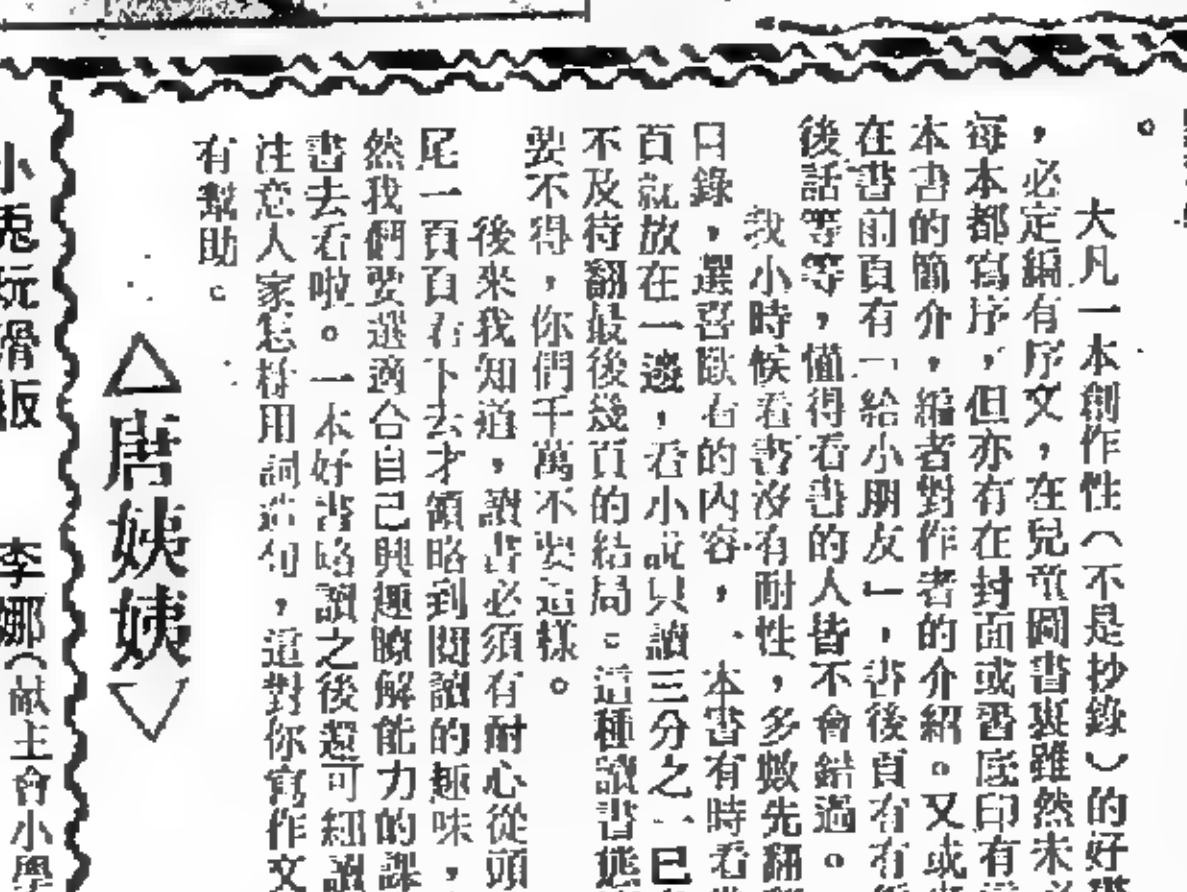 。
大凡一本創作性（不是抄錄）的好
，必定編有序文，在兒童圖書裏雖然未必
每本都寫序，但亦有在封面或書底印有
本書的簡介，編者對作者的介紹。又或
在書前頁有「給小朋友」，書後頁有
後話等等，懂得看書的人皆不會錯過。
我小時候看書沒有耐性，多數先翻
目錄，選喜歡看的內容，一本書有時看
百就放在一邊，看小說只讀三分之一已
不及待翻最後幾頁的結局。這種讀書態
要不得，你們千萬不要這樣。
後來我知道，讀書必須有耐心從頭
尾一頁頁看下去才領略到閱讀的趣味，
然我們要選適合自己興趣瞭解能力的課
書去看啦。一本好書略讀之後還可細讀
注意人家怎樣用詞造句，這對你寫作文
有幫助。
△唐姨姨▽
小兎玩滑板
李娜（献主會小學